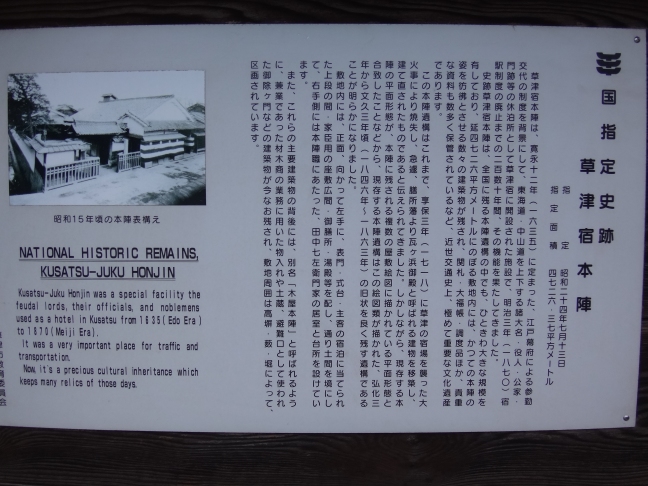 国指定史跡
草津宿本陣
指定 昭和二十四年七月十三日
指定面積 四七二六・三七平方メートル
草津宿本陣は、寛永十二年(一六三五)に定まった、江戸幕府による参勤
交代の制度を背景にして、東海道・中山道を上下する諸大名・役人・公家・
門跡等の休泊所として草津宿に開設された施設で、明治三年(一八七〇)宿
駅制度の廃止までの二百数十年間、その機能を果たしてきました。
史跡草津宿本陣は、全国に残る本陣遺構の中でも、ひときわ大きな規模を
有しており、延四七二六平方メートルにのぼる敷地内には、かつての本陣の
姿を彷彿とさせる数々の建築物が残され、関札・大福帳・調度品ほか、貴重
な資料も数多く保管されているなど、近世交通史上、極めて重要な文化遺産
であります。
この本陣遺構はこれまで、享保三年(一七一八)に草津の宿場を襲った大
火事により焼失し、急遽、膳所藩より瓦ヶ浜御殿と呼ばれる建物を移築し、
建て直されたものであると伝えられてきました。しかしながら、現存する本
陣の平面形態が、本陣に残される複数の屋敷絵図に描かれている平面形態と
合致したことなどから、現存する本陣遺構はこの絵図類が描かれた、弘化三
年から文久三年頃(一八四六年~一八六三年)の旧状を良く残す遺構である
ことが明らかになりました。
敷地内には、正面、向かって左手に、表門・式台・主客の宿泊に当てられ
た上段の間・家臣用の座敷広間・御膳所・湯殿等を配し、通り土間を境にし
て、右手側には本陣職にあたった、田中七左衛門家の居室と台所を設けてい
ます。
また、これらの主要建築物の背後には、別名「木屋本陣」と呼ばれるよう
に、兼業であった材木商の業務に用いた物入れや土蔵、避難口として使われ
た御除ヶ門などの建築物が今なお残され、敷地周囲は高塀・藪・堀によって、
区画されています。
昭和15年頃の本陣表構え
NATIONAL HISTORIC REMAINS,
KUSATSU-JUKU HONJIN
Kusatsu-Juku Honjin was a special facility the
feudal lords, their officials, and noblemens
used as a hotel in Kusatsu from 1635(Edo Era)
to 1870(Meiji Era).
It was a very important place for traffic and
transportation.
Now, it's a precious cultural inheritance which
keeps many relics of those days.
市教育委員会